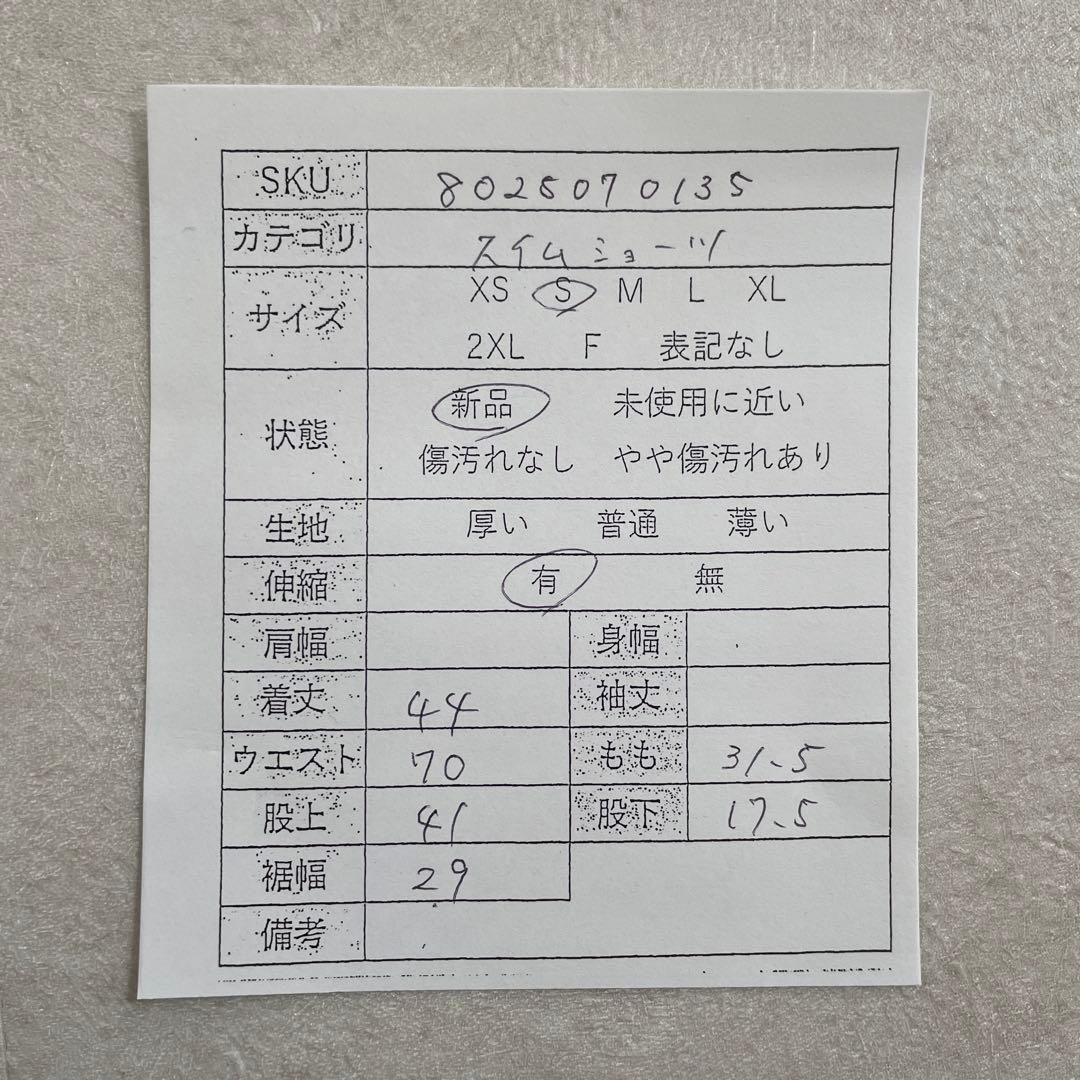 SKU 8025070135
カテゴリ スイムショーツ
サイズ XS S M L XL
2XL F 表記なし
状態 新品 未使用に近い
傷汚れなし やや傷汚れあり
生地 厚い 普通 薄い
伸縮 有 無
肩幅 身幅
着丈 44 袖丈
ウエスト 70 もも 31.5
股上 41 股下 17.5
裾幅 29
備考